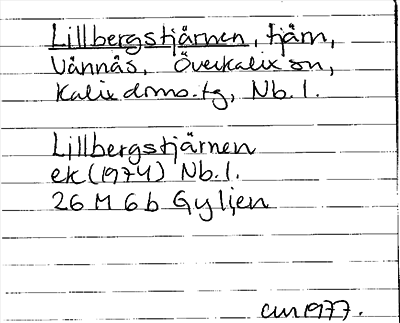 Lillbergstjärnen, tjärn,
Vännäs, Överkalix sn,
Kalix dms.tg, Nb.l.
Lillbergstjärnen
ek (1974) Nb.l.
26 M 6 b Gyljen
1977.